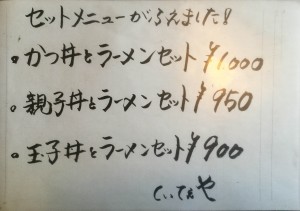 セットメニューがふえました!
。かつ丼とラーメンセット ¥1000
。親子丼とラーメンセット ¥950
。玉子丼とラーメンセット ¥900